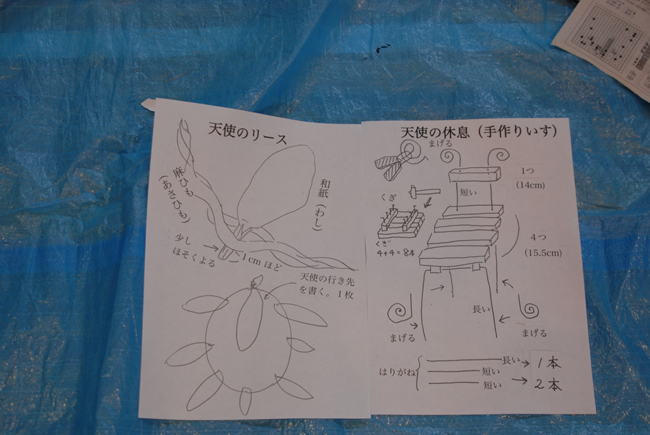 天使のリース
麻ひも
(あさひも)
和紙(わし)
少し
ほそくよる
1cmほど
天使の行き先
を書く。1枚
天使の休息(手作りいす)
まげる
1つ
(14cm)
短い
くぎ
くぎ
4+4=8本
4つ
(15.5cm)
長い
まげる
まげる
はりがね
長い→1本
短い
短い
→2本